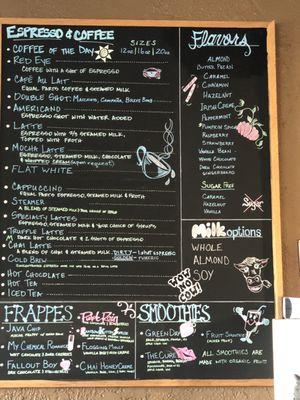 ESPRESSO & COFFEE
SIZES
12oz/16oz/20oz
COFFEE OF THE DAY
RED EYE
COFFEE WITH A SHOT OF ESPRESSO
CAFÉ AU LAIT
EQUAL PARTS COFFEE & STEAMED MILK
DOUBLE SHOT:
AMERICANO
ESPRESSO SHOT WITH WATER ADDED
LATTE
ESPRESSO WITH STEAMED MILK,
TOPPED WITH FROTH
MOCHA LATTE
ESPRESSO, STEAMED MILK, CHOCOLATE
& WHIPPED CREAM (upon request)
FLAT WHITE
CAPPUCCINO
EQUAL PARTS ESPRESSO, STEAMED MILK & FROTH
STEAMER
A BLEND OF STEAMED MILK
SPECIALTY LATTES
ESPRESSO, STEAMED MILK & YOUR CHOICE OF SYRUPS
TRUFFLE LATTE
DARK HOT CHOCOLATE & 2 SHOTS OF ESPRESSO
CHAI LATTE
STEAMED MILK, DIRTY - 1 SHOT ESPRESSO
COLD BREW
GOLDEN - TUMERIC
HOT CHOCOLATE
HOT TEA
ICED TEA
Flavors
ALMOND
BUTTER PECAN
CARAMEL
CINNAMON
HAZELNUT
IRISH CREME
PEPPERMINT
PUMPKIN SPICE
RASPBERRY
STRAWBERRY
VANILLA BEAN
WHITE CHOCOLATE
DARK CHOCOLATE
GINGERBREAD
SUGAR FREE
CARAMEL
HAZELNUT
VANILLA
Milk options
WHOLE
ALMOND
SOY
WOW
NO
COW!
FRAPPES
JAVA CHIP
MY CHEMICAL ROMANCE
WHITE CHOCOLATE & DARK CHOCOLATE
FALLOUT BOY
DARK CHOCOLATE
Pink
FLOGGING MOLLY
CHAI HONEY CREME
SMOOTHIES
GREEN DAY
THE CURE
FRUIT SMOOTHIE
ALL SMOOTHIES ARE
MADE WITH ORGANIC FRUIT